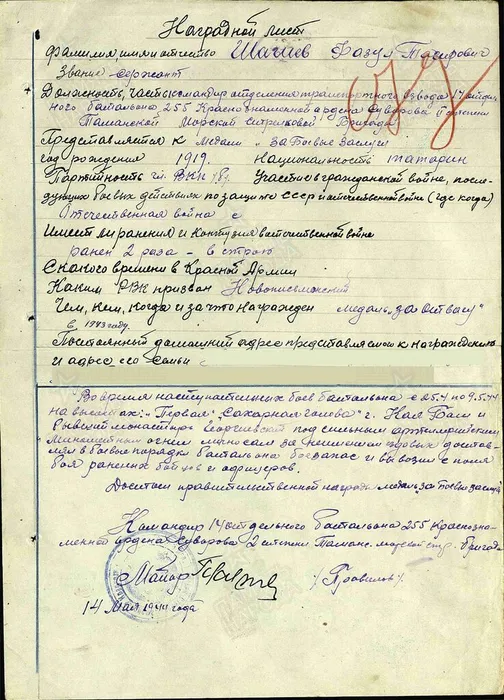 Наградной лист
фамилия имя и отчество Шагаев Фазул Тагирович
Звание - сержант
Должность, часть командир отделения транспортного взвода 14 отдель
ного батальона 255 Краснознаменной ордена Суворова II степени
Таманской Морской стрелковой Бригады
Представляется к медали "За Боевые Заслуги
год рождения 1919. Национальность татарин
Партийность чл. ВКП/б/ Участие в гражданской войне, после-
дующих боевых действиях по защите СССР и отечественной войне (где когда)
Отечественная война с
Имеет ли ранения и контузии в отечественной войне
ранен 2 раза - в строю
С какого времени в Красной Армии
Каким РВК призван
Чем, кем, когда и за что награжден медаль "за отвагу"
в 1943 году.
Постоянный домашний адрес представляемого к награждению
и адрес его семьи
Во время наступательных боев батальона с 25.4 по 9.5.44
на высотах: "Первая", "Сахарная голова" г. Кая Баш и
монастырь георгиевский под сильным артиллерийским
Минометным огнем доставлял
в боевые порядки батальона боезапас и вывозил с поля
боя раненых бойцов и офицеров.
Достоин правительственной награды медаль "за боевые заслуги
Командир 14 отдельного батальона 255 Краснозна-
менной ордена Суворова 2 степени Таманс. морской стр. бригад
Майор /
14 Мая 1944 года